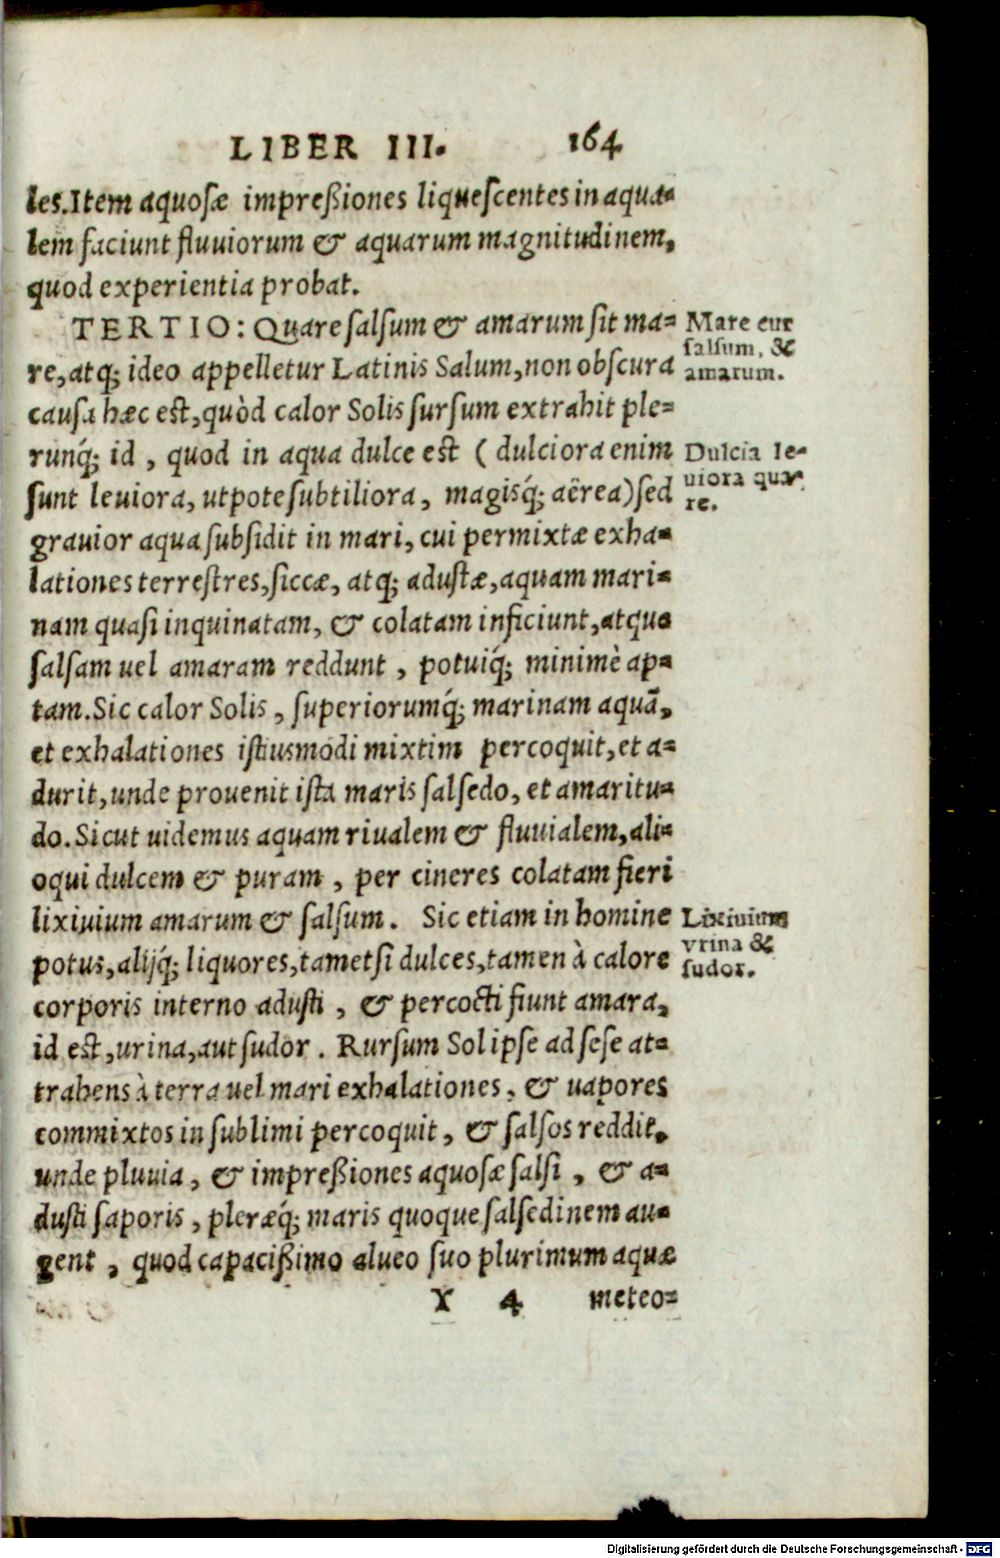 LIBER III. 164
les. Item aquosæ impreßiones liquescentes in aqua-
lem faciunt fluuiorum & aquarum magnitudinem,
quod experientia probat.
TERTIO: Quare salsum & amarum sit ma-
re, atq; ideo appelletur Latinis Salum, non obscura
causa hæc est, quòd calor Solis sursum extrahit ple-
runq́; id, quod in aqua dulce est (dulciora enim
sunt leuiora, utpote subtiliora, magisq́; aërea) sed
grauior aqua subsidit in mari, cui permixtæ exha-
lationes terrestres, siccæ, atq; adustæ, aquam mari-
nam quasi inquinatam, & colatam inficiunt, atque
salsam uel amaram reddunt, potuiq́; minimè ap-
tam. Sic calor Solis, superiorumq́; marinam aquã,
et exhalationes istiusmodi mixtim percoquit, et a-
durit, unde prouenit ista maris salsedo, et amaritu-
do. Sicut uidemus aquam riualem & fluuialem, ali-
oqui dulcem & puram, per cineres colatam fieri
lixiuium amarum & salsum. Sic etiam in homine
potus, alijq́; liquores, tametsi dulces, tamen à calore
corporis interno adusti, & percocti fiunt amara,
id est, urina, aut sudor. Rursum Sol ipse ad sese at-
trahens à terra uel mari exhalationes, & uapores
commixtos in sublimi percoquit, & salsos reddit,
unde pluuia, & impreßiones aquosæ salsi, & a-
dusti saporis, pleræq́; maris quoque salsedinem au-
gent, quod capacißimo alueo suo plurimum aquæ
Y 4 meteo-
Mare cur
salsum, &
amarum.
Dulcia le-
uiora qua-
re.
Lixiuium
vrina &
sudor.
Digitalisierung gefördert durch die Deutsche Forschungsgemeinschaft - DFG